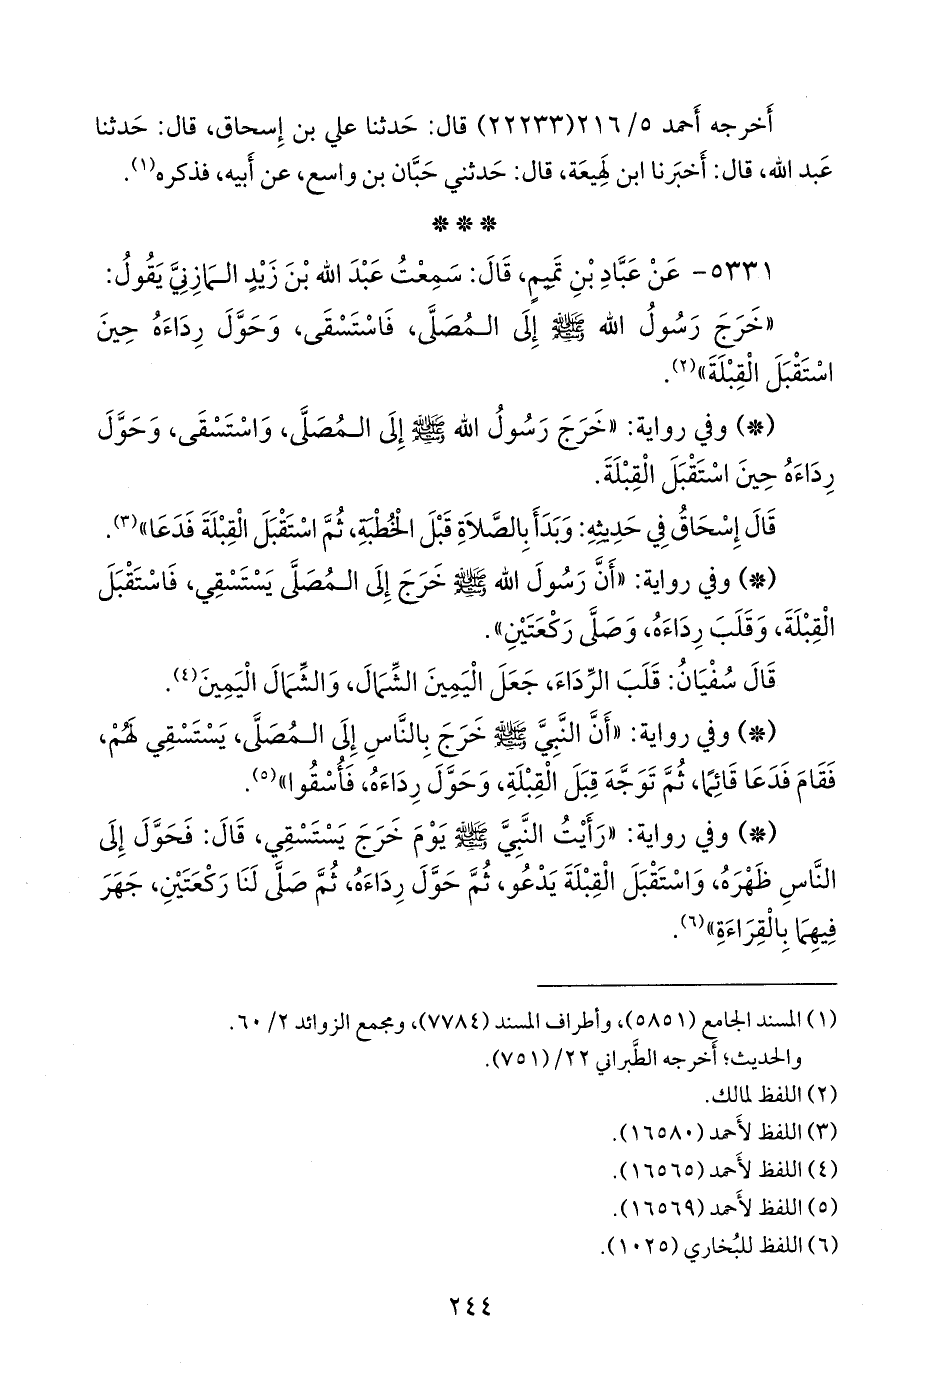 أَخرجه أَحمد ٥/ ٢١٦(٢٢٢٣٣) قال: حَدثنا علي بن إِسحاق، قال: حَدثنا
عَبد الله، قال: أَخبَرنا ابن لَهِيعَة، قال: حَدثني حَبَّان بن واسع، عن أَبيه، فذكره(١).
* * *
٥٣٣١- عَنْ عَبَّادِ بْنِ تَمِيمٍ، قَالَ: سَمِعْتُ عَبْدَ الله بْنَ زَيْدٍ الـمَازِنِيَّ يَقُولُ:
«خَرَجَ رَسُولُ الله ﷺ إِلَى الـمُصَلَّى، فَاسْتَسْقَى، وَحَوَّلَ رِدَاءَهُ حِينَ
اسْتَقْبَلَ الْقِبْلَةَ»(٢).
(*) وفي رواية: «خَرَجَ رَسُولُ الله ﷺ إِلَى الـمُصَلَّى، وَاسْتَسْقَى، وَحَوَّلَ
رِدَاءَهُ حِينَ اسْتَقْبَلَ الْقِبْلَةَ.
قَالَ إِسْحَاقُ فِي حَدِيثِهِ: وَبَدَأَ بِالصَّلاَةِ قَبْلَ الْخُطْبَةِ، ثُمَّ اسْتَقْبَلَ الْقِبْلَةَ فَدَعَا»(٣).
(*) وفي رواية: «أَنَّ رَسُولَ الله ﷺ خَرَجَ إِلَى الـمُصَلَّى يَسْتَسْقِي، فَاسْتَقْبَلَ
الْقِبْلَةَ، وَقَلَبَ رِدَاءَهُ، وَصَلَّى رَكْعَتَيْنِ».
قَالَ سُفْيَانُ: قَلَبَ الرِّدَاءَ، جَعَلَ الْيَمِينَ الشِّمَالَ، وَالشِّمَالَ الْيَمِينَ(٤).
(*) وفي رواية: «أَنَّ النَّبِيَّ ﷺ خَرَجَ بِالنَّاسِ إِلَى الـمُصَلَّى، يَسْتَسْقِي لَهُمْ،
فَقَامَ فَدَعَا قَائِمًا، ثُمَّ تَوَجَّهَ قِبَلَ الْقِبْلَةِ، وَحَوَّلَ رِدَاءَهُ، فَأُسْقُوا»(٥).
(*) وفي رواية: «رَأَيْتُ النَّبِيَّ ﷺ يَوْمَ خَرَجَ يَسْتَسْقِي، قَالَ: فَحَوَّلَ إِلَى
النَّاسِ ظَهْرَهُ، وَاسْتَقْبَلَ الْقِبْلَةَ يَدْعُو، ثُمَّ حَوَّلَ رِدَاءَهُ، ثُمَّ صَلَّى لَنَا رَكْعَتَيْنِ، جَهَرَ
فِيهِمَا بِالْقِرَاءَةِ»(٦).
(١) المسند الجامع (٥٨٥١)، وأطراف المسند (٧٧٨٤)، ومجمع الزوائد ٢/ ٦٠.
والحديث؛ أَخرجه الطَّبراني ٢٢/ (٧٥١).
(٢) اللفظ لمالك.
(٣) اللفظ لأَحمد (١٦٥٨٠).
(٤) اللفظ لأَحمد (١٦٥٦٥).
(٥) اللفظ لأَحمد (١٦٥٦٩).
(٦) اللفظ للبُخاري (١٠٢٥).
٢٤٤